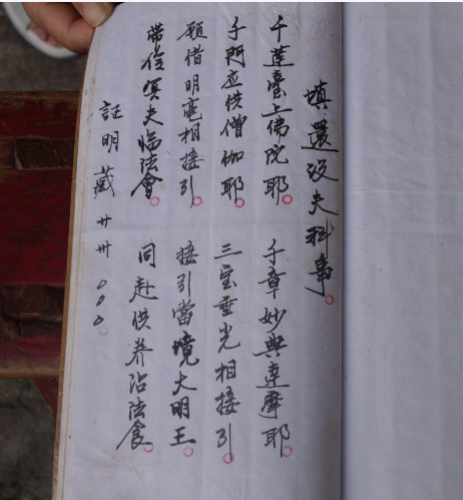 填還役夫科事。
千蓮臺上佛陀耶。 千章妙典達摩耶
千門應供僧伽耶。 三宝垂光相接引。
願借明毫相接引。 接引當境大明王
帶領冥夫臨法會。 同赴供养沾法食。
証明 藏卄卅